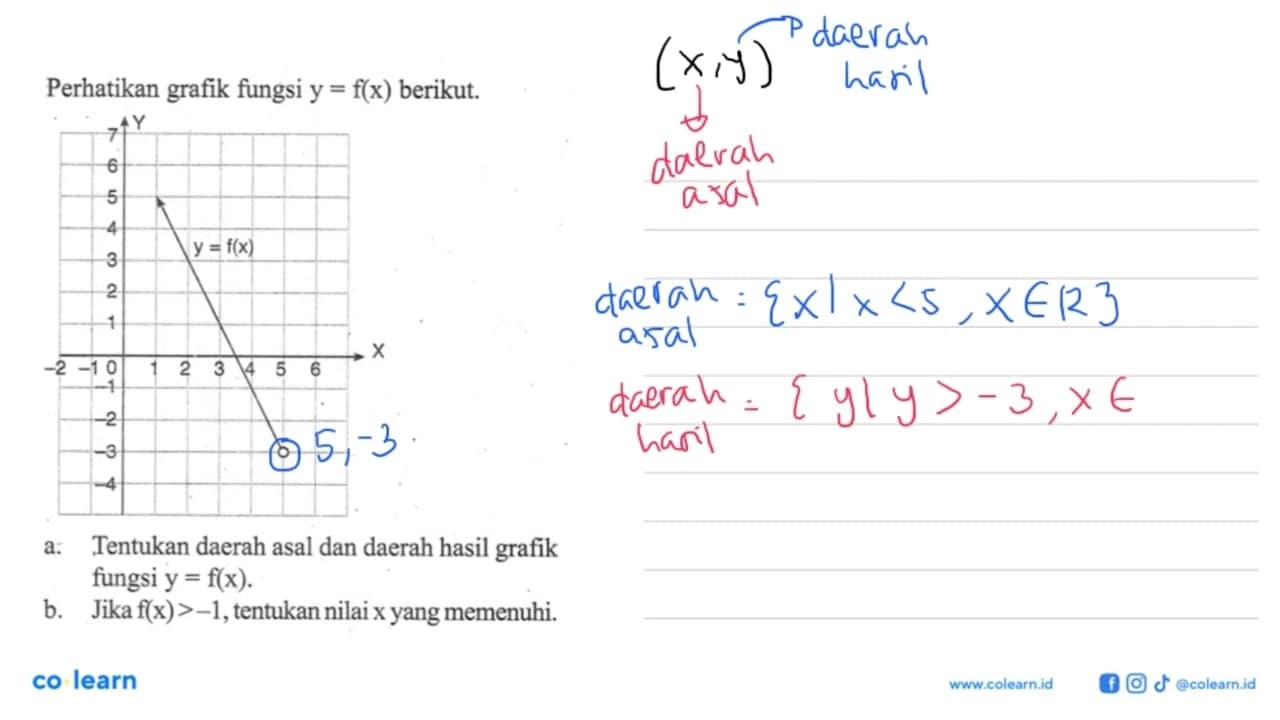 Perhatikan grafik fungsi y = f(x) berikut.
Y
7
6
5
4
3
2
1
y = f(x)
X
-2 -1 0 1 2 3 4 5 6
-1
-2
-3
-4
5, -3
a. Tentukan daerah asal dan daerah hasil grafik
fungsi y = f(x).
b. Jika f(x) > -1, tentukan nilai x yang memenuhi.
(x, y) daerah
hasil
daerah
asal
daerah = {x | x < 5, x ∈ R}
asal
daerah = { y | y > -3, x ∈
hasil
co learn
www.colearn.id
@colearn.id